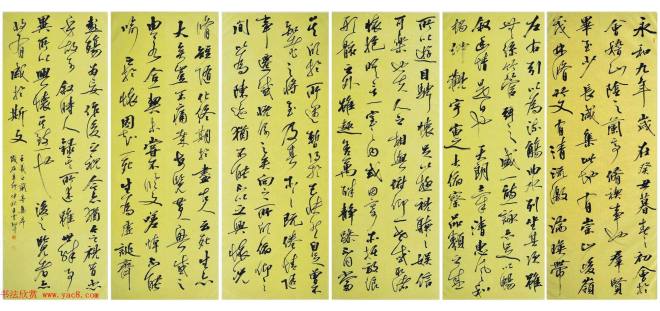 永和九年歲在癸丑暮春之初會於
會稽山陰之蘭亭脩禊事也群賢
畢至少長咸集此地有崇山峻嶺
茂林脩竹又有清流激湍映帶
左右引以為流觴曲水列坐其次雖
無絲竹管絃之盛一觴一詠亦足以暢
敘幽情是日也天朗氣清惠風和
暢仰觀宇宙之大俯察品類之盛
所以遊目騁懷足以極視聽之娛信
可樂也夫人之相與俯仰一世或取諸
懷抱晤言一室之內或因寄所託放浪
形骸之外雖趣舍萬殊靜躁不同當
其欣於所遇暫得於己快然自足曾不
知老之將至及其所之既倦情隨
事遷感慨係之矣向之所欣俛仰之
間以為陳跡猶不能不以之興懷況
脩短隨化終期於盡古人云死生亦
大矣豈不痛哉每覽昔人興感之
由若合一契未嘗不臨文嗟悼不能
喻之於懷固知一死生為虛誕齊
彭殤為妄作後之視今亦猶今之視昔悲
夫故列敘時人錄其所述雖世殊事
異所以興懷其致一也後之覽者亦
將有感於斯文
王羲之蘭亭集序
书法欣赏 www.yac8.com